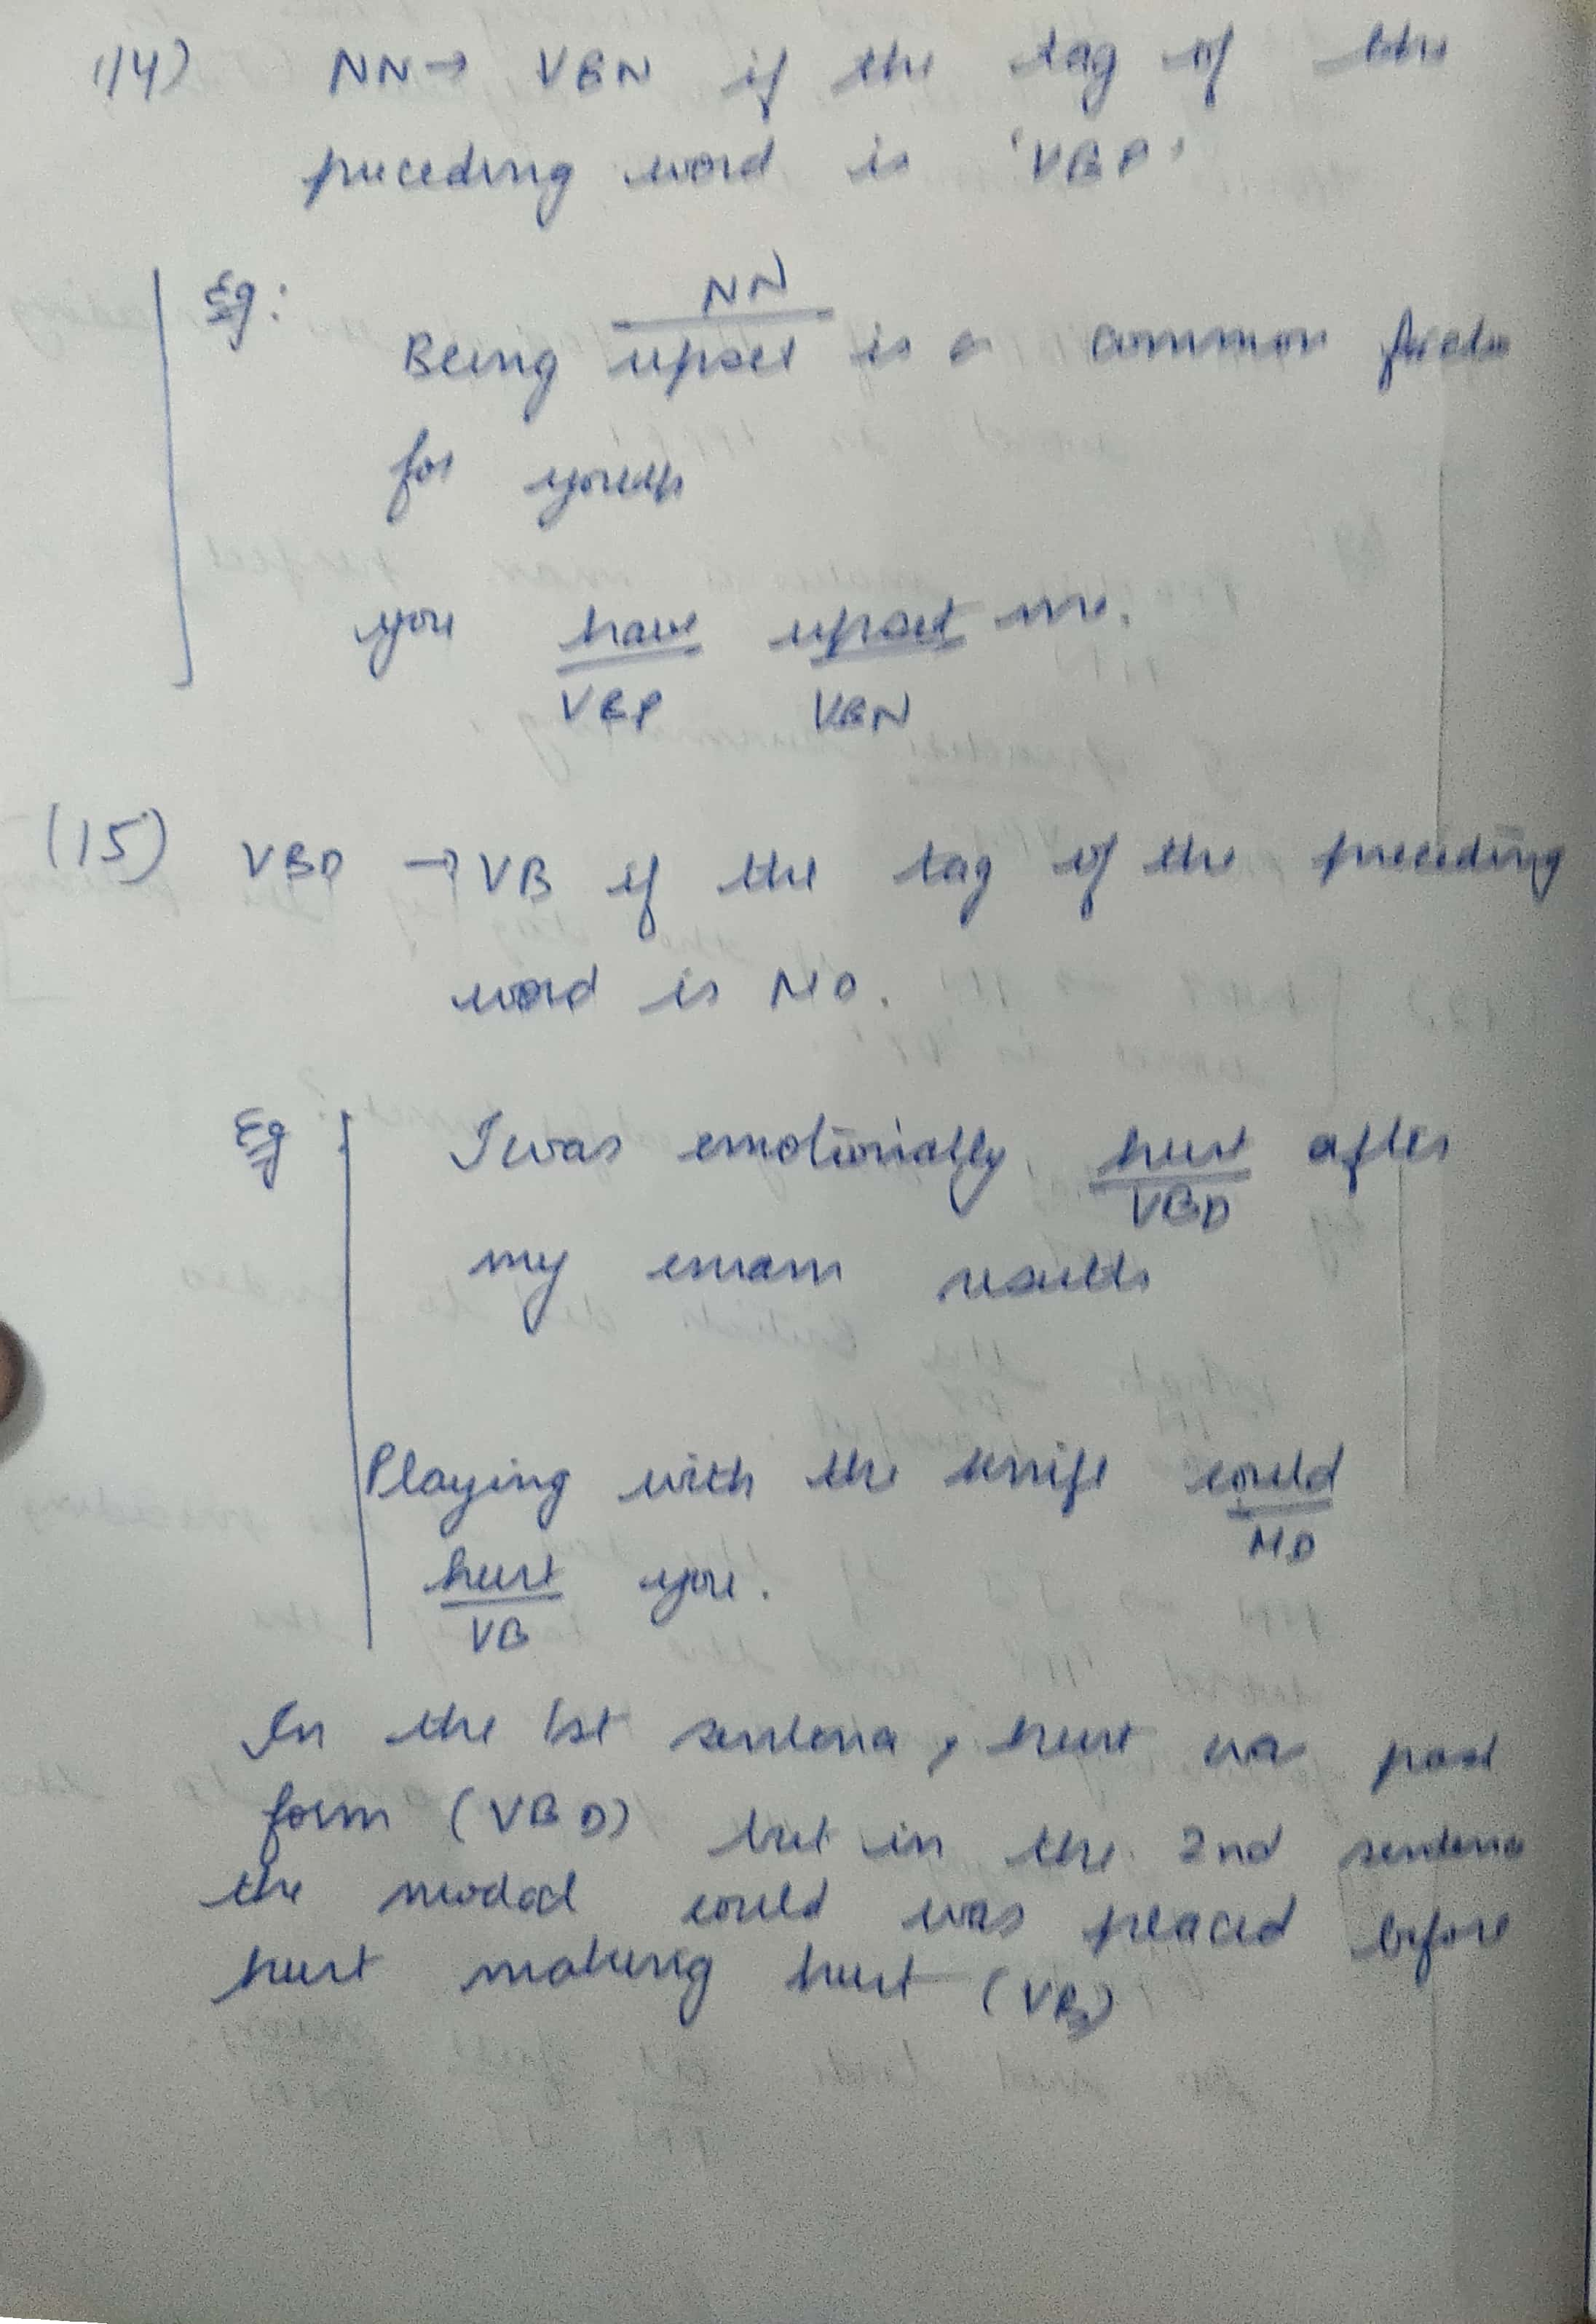 (14) NN → VBN if the tag of the
preceding word is 'VBP'
Eg:
NN
Being upset is a common
for youth
you have upset me.
VBP VBN
(15) VBD → VB if the tag of the preceding
word is MD.
Eg I was emotionally hurt after
VBD
my exam results
Playing with the knife could
MD
hurt you.
VB
In the 1st sentence, hurt was past
form (VBD) but in the 2nd sentence
the modal could was placed before
hurt making hurt (VB)